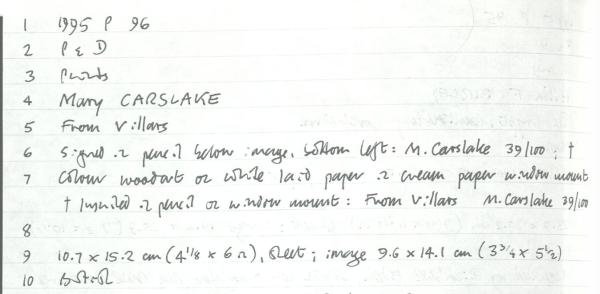 1 1995 P 96
2 P & D
3 Prints
4 Mary CARSLAKE
5 From Villars
6 Signed in pencil below image, bottom left: M. Carslake 39/100; †
7 Colour woodcut on white laid paper in cream paper window mount
† Inscribed in pencil on window mount: From Villars M. Carslake 39/100
8
9 10.7 x 15.2 cm (4 1/8 x 6 in), sheet; image 9.6 x 14.1 cm (3 3/4 x 5 1/2)
10 British